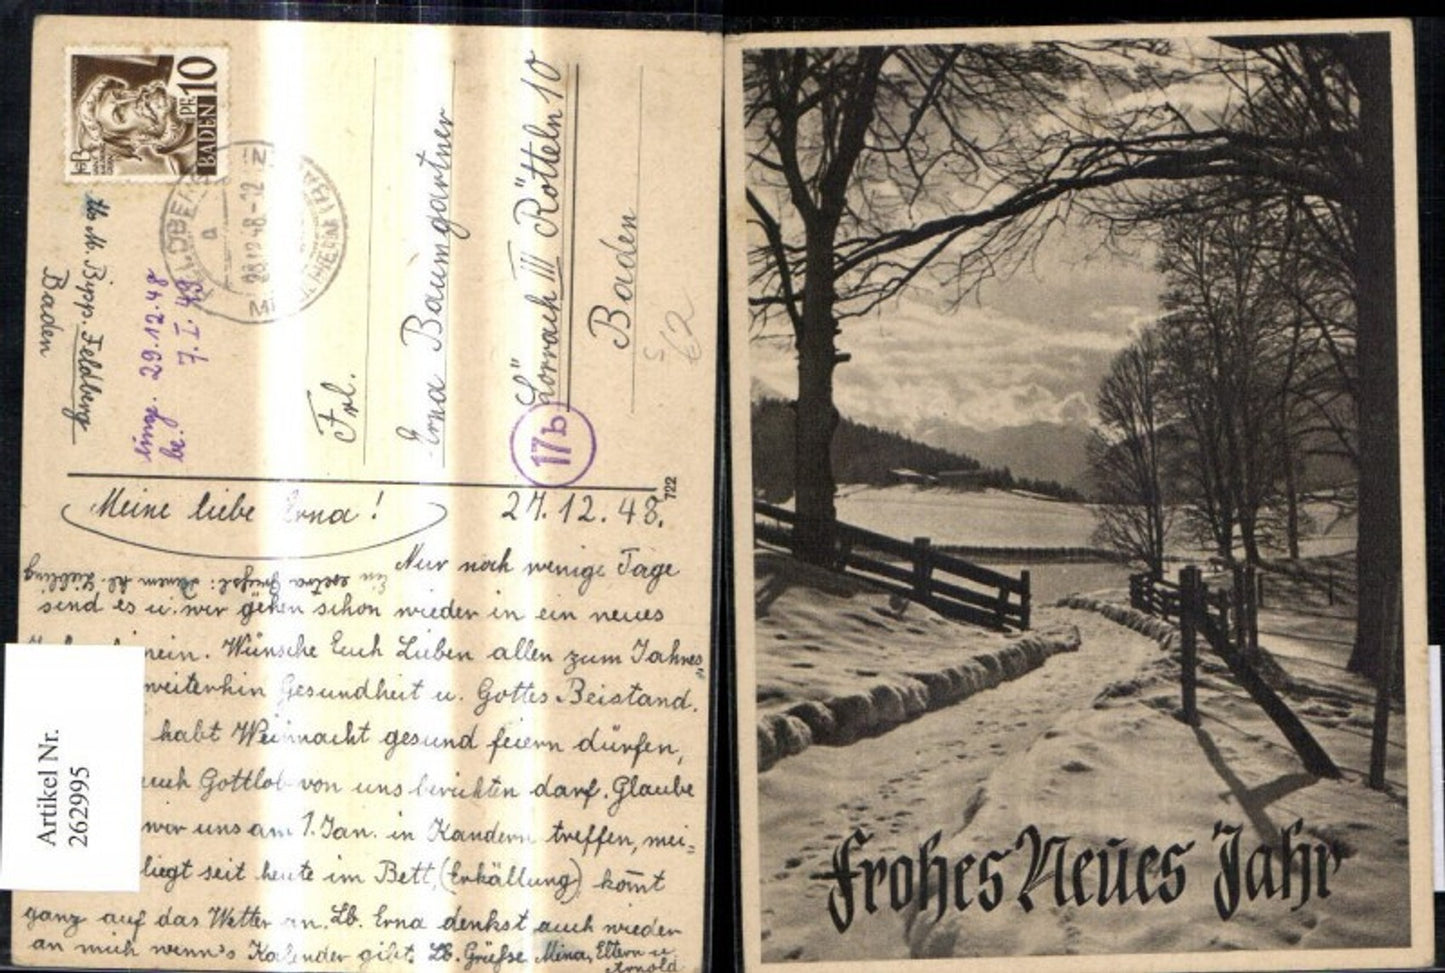 10
PF.
BADEN
Feldberg
Baden
eing. 29.12.48
be. 7. I. 49
Frl.
Erna Baumgartner
Lörrach III Rötteln 10
Baden
17b
722
Meine liebe Erna! 27.12.48.
Nur noch wenige Tage
sind es u. wir gehen schon wieder in ein neues
hinein. Wünsche Euch Lieben allen zum Jahres
weiterhin Gesundheit u. Gottes Beistand.
habt Weihnacht gesund feiern dürfen,
auch Gottlob von uns berichten darf. Glaube
wir uns am 1. Jan. in Kandern treffen, mei=
liegt seit heute im Bett, (Erkältung) kom̄t
ganz auf das Wetter an. Lb. Erna denkst auch wieder
an mich wenn's Kalender gibt. Lb. Grüße Mina, Eltern u.
Arnold
Artikel Nr.
262995
Frohes Neues Jahr